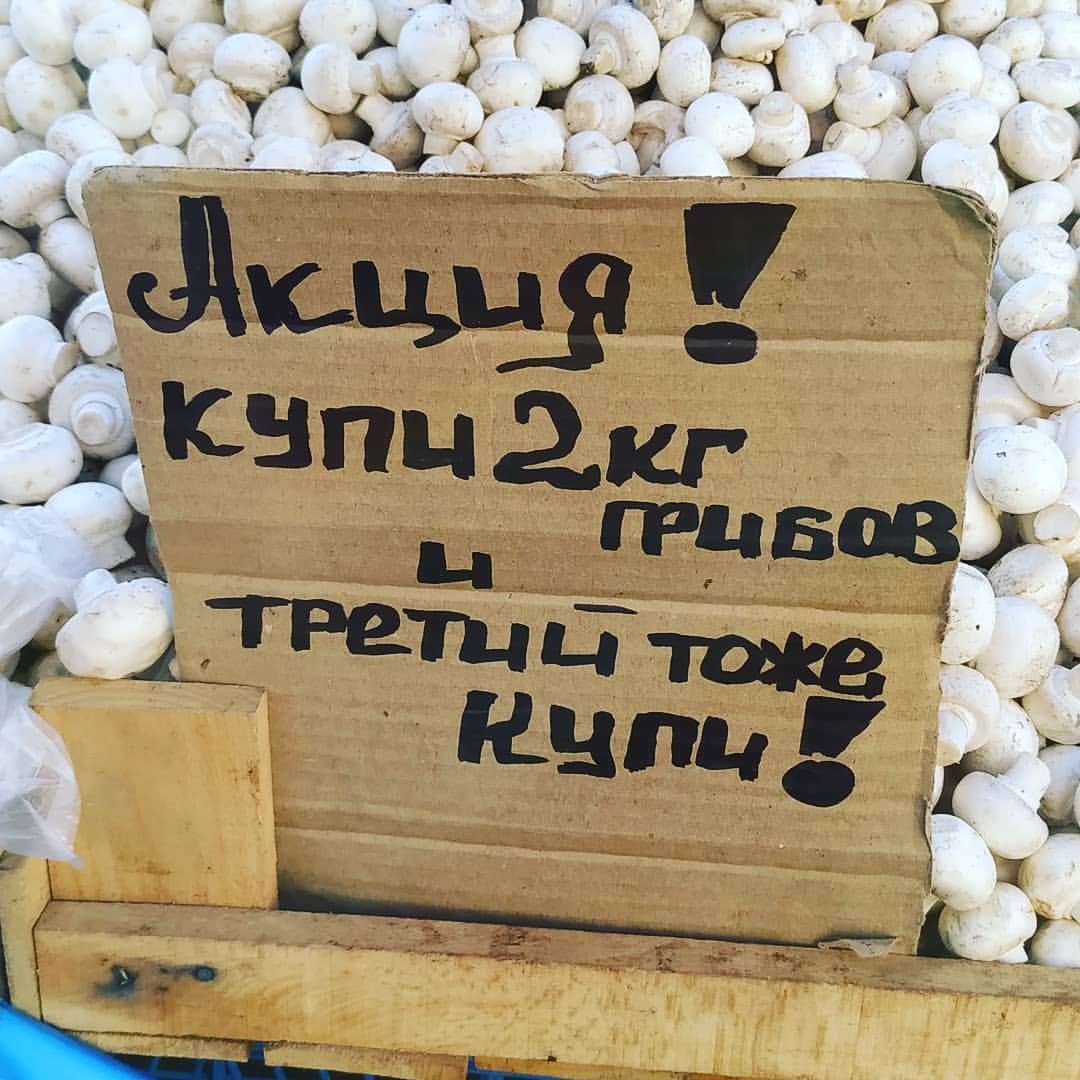 Акция!
купи 2кг
грибов
и
третий тоже
купи!